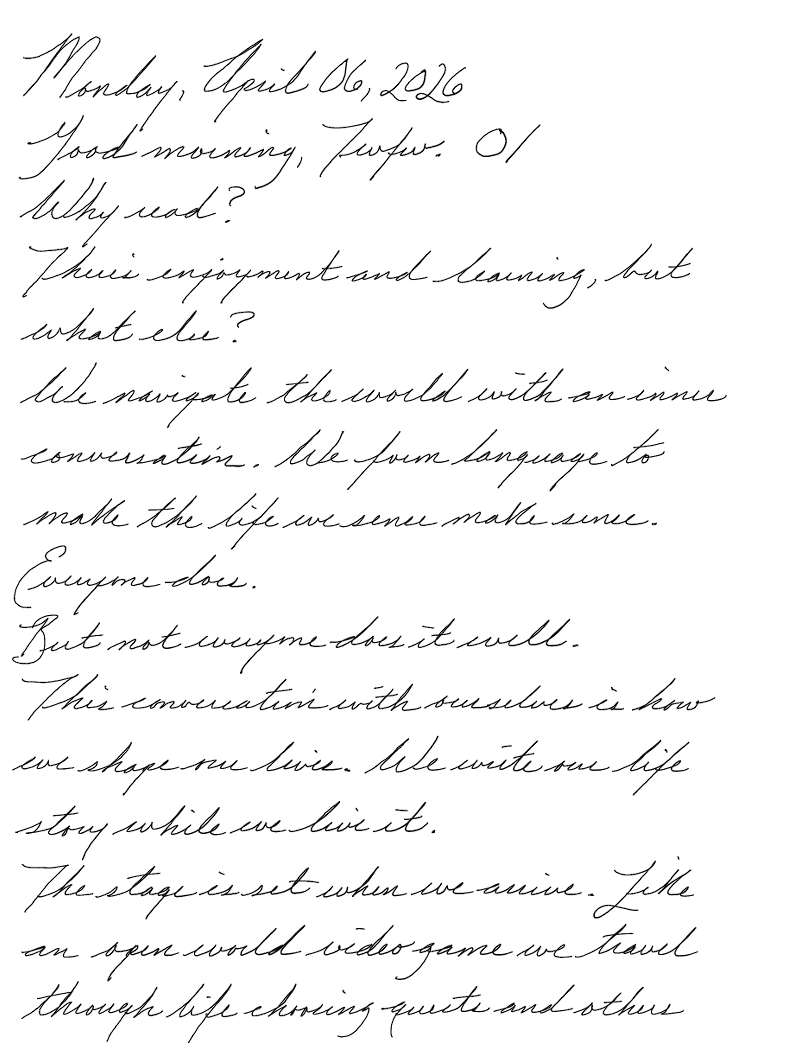 Monday, April 06, 2026
Good morning, Twfw. 01
Why read?
There's enjoyment and learning, but
what else?
We navigate the world with an inner
conversation. We form language to
make the life we sense make sense.
Everyone does.
But not everyone does it well.
This conversation with ourselves is how
we shape our lives. We write our life
story while we live it.
The stage is set when we arrive. Like
an open world video game we travel
through life choosing quests and others